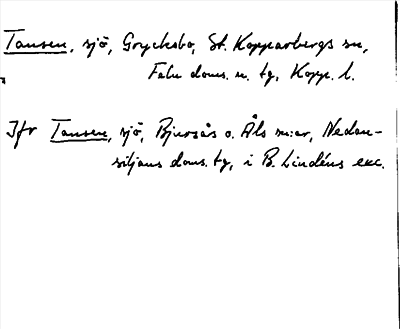 Tansen, sjö, Grycksbo, St. Kopparbergs sn,
Falu doms. n. tg, Kopp. l.
Jfr Tansen, sjö, Bjursås o. Åls sn:ar, Nedan-
siljans doms. tg, i B. Lindéns exc.